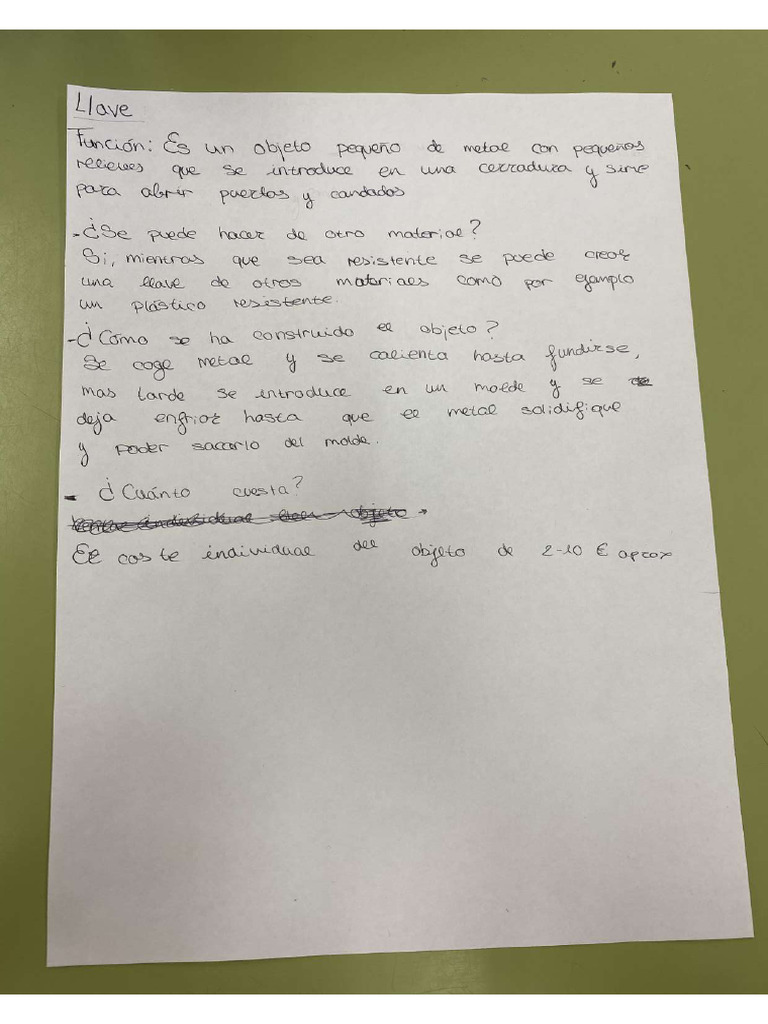 Llave
Función: Es un objeto pequeño de metal con pequeños
relieves que se introduce en una cerradura y sirve
para abrir puertas y candados
- ¿Se puede hacer de otro material?
Si, mientras que sea resistente se puede crear
una llave de otros materiaes como por ejemplo
un plástico resistente.
- ¿Cómo se ha construido el objeto?
Se coge metal y se calienta hasta fundirse,
mas tarde se introduce en un molde y se
deja enfriar hasta que el metal solidifique
y poder sacarlo del molde.
- ¿Cuánto cuesta?
El coste individual del objeto de 2-10 € aprox